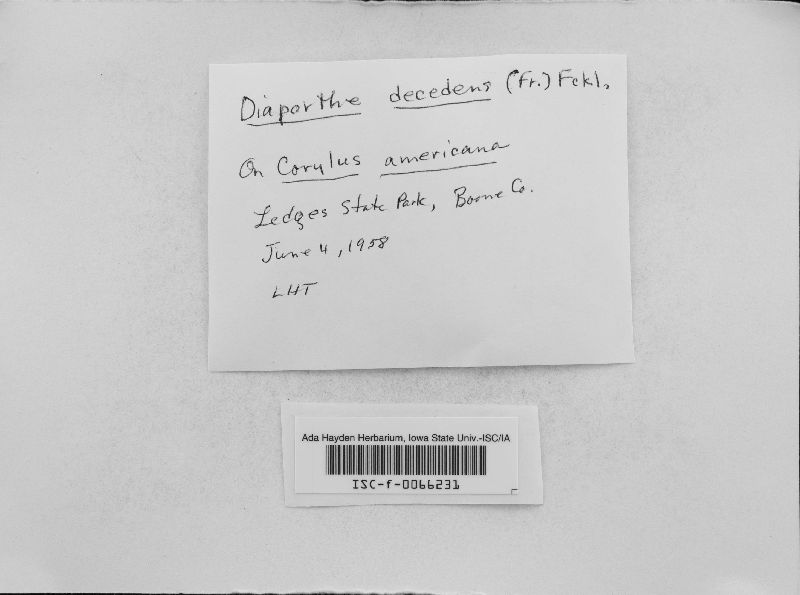 Diaporthe decedens (Fr.) Fckl.
On Corylus americana
Ledges State Park, Boone Co.
June 4, 1958
LHT
Ada Hayden Herbarium, Iowa State Univ.-ISC/IA
ISC-f-0066231